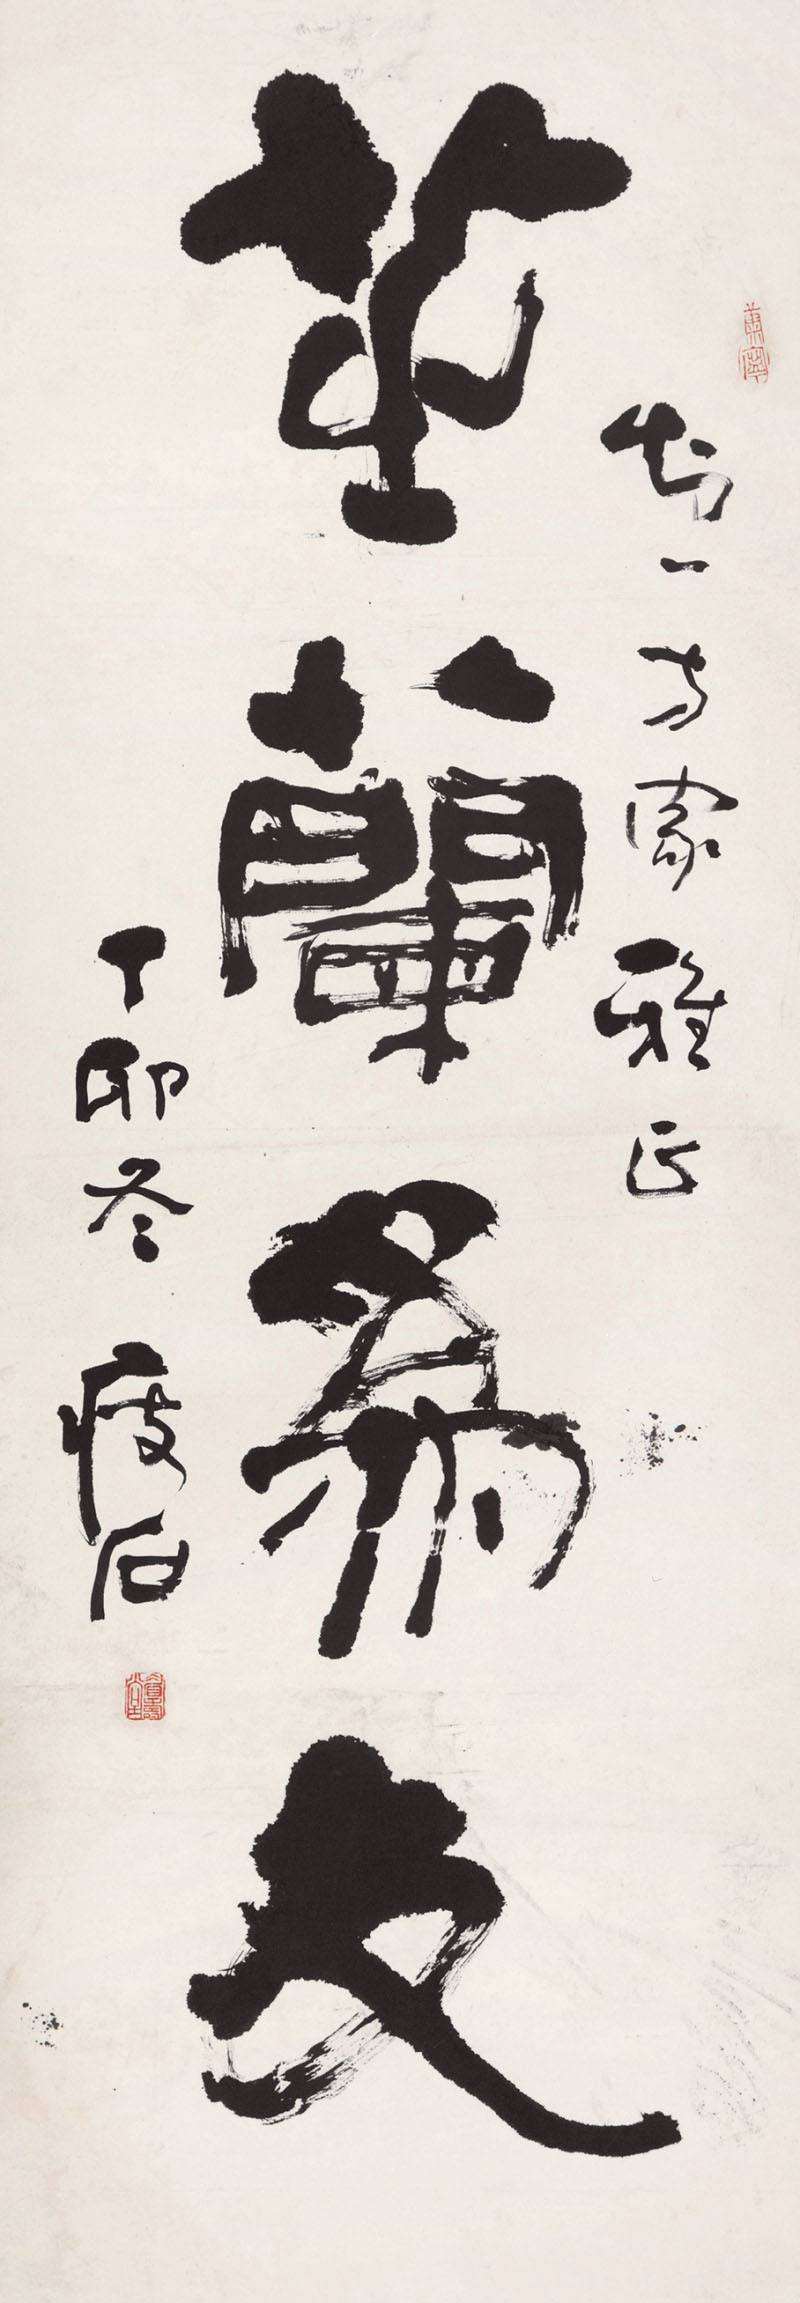 芝蘭為友
一方家雅正
丁卯冬 石